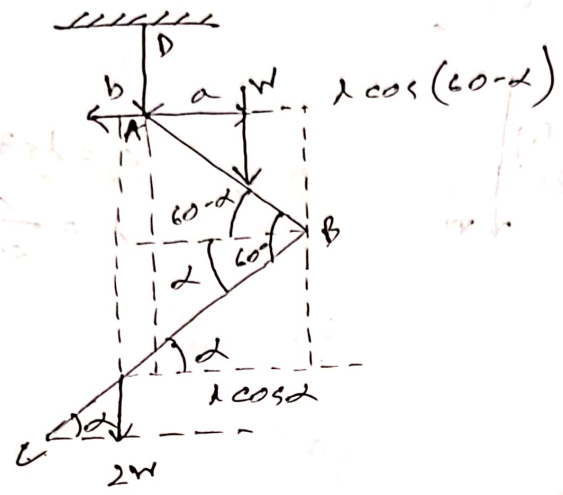 D
b a W l cos(60-α)
A
60-α
B
60°
α
α
l cosα
α
C
2W